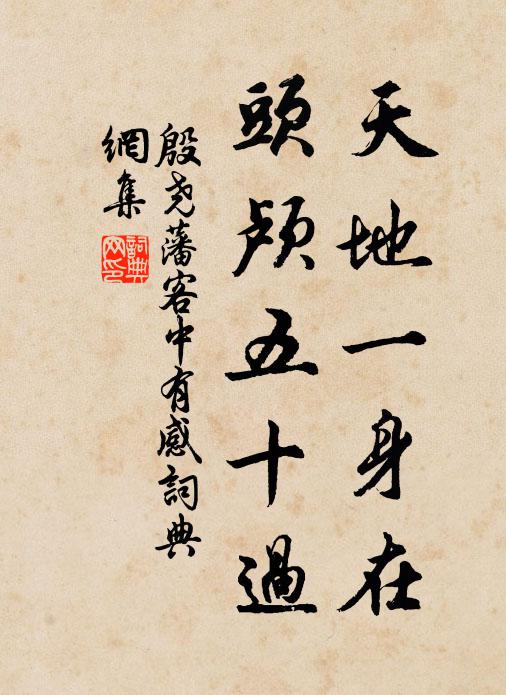 天地一身在
頭顱五十過
殷尧藩客中有感詞典
網集
詞典
網印